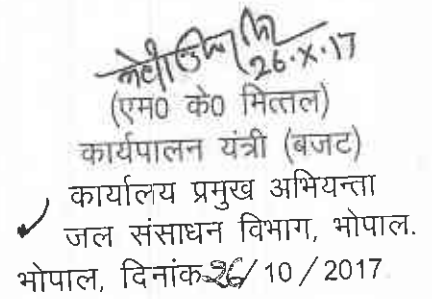 26.X.17
(एम0 के0 मित्तल)
कार्यपालन यंत्री (बजट)
कार्यालय प्रमुख अभियन्ता
जल संसाधन विभाग, भोपाल.
भोपाल, दिनांक 26/ 10 / 2017